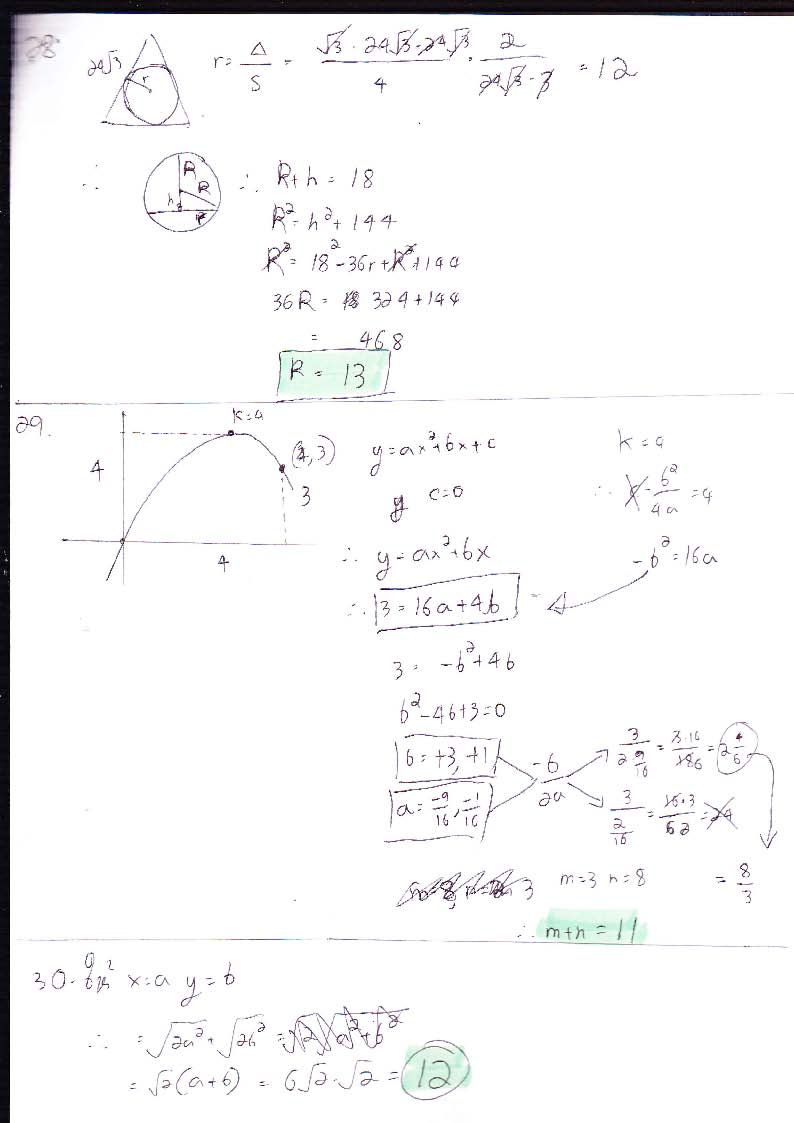 28
24√3 r r = Δ/S = (√3 · 24√3 · 24√3)/4 · 2/(24√3 · 3) = 12
∴ R R h r ∴ R+h = 18
R² = h² + 144
R² = 18² - 36r + R² + 144
36R = 324 + 144
= 468
R = 13
29.
k=4
4
(4, 3)
3
4
y = ax² + bx + c
y c=0
∴ y = ax² + bx
∴ 3 = 16a + 4b
k = 4
∴ -b²/4a = 4
-b² = 16a
3 = -b² + 4b
b² - 4b + 3 = 0
b = +3, +1
a = -9/16, -1/16
-b/2a
3/(2 9/16) = 3·16/186 = 2 4/6
3/(2/16) = 16·3/62 = 24
= 8/3
m=3 n=8
∴ m+n = 11
30. x=a y=b
∴ = √2a² + √2b² = √2√a²+b²
= √2(a+b) = 6√2·√2 = 12